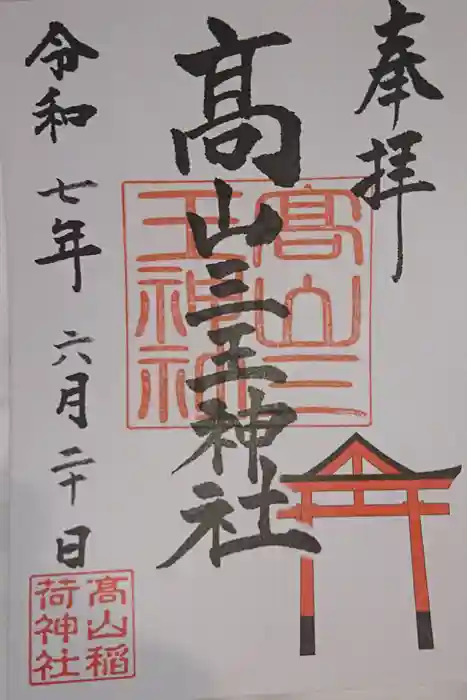 奉拝
髙山三王神社
髙山三
王神社
令和七年六月二十日
髙山稲
荷神社